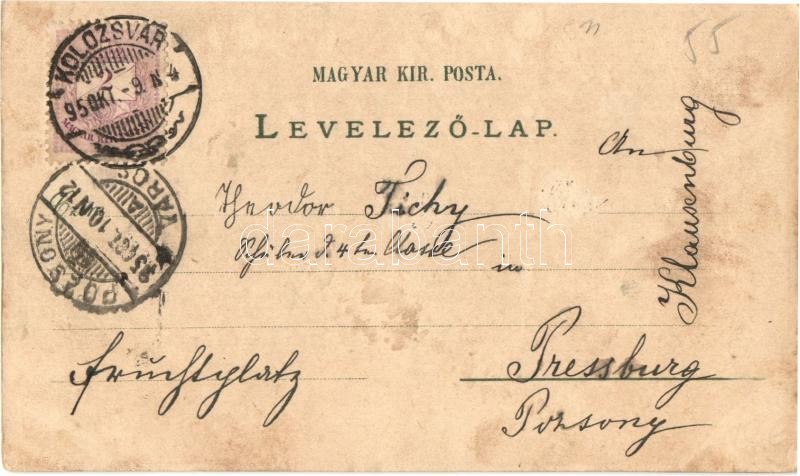 KOLOZSVÁR
95 OKT. - 9. N 4
MAGYAR KIR. POSTA.
LEVELEZŐ-LAP.
55
An
Theodor Tichy
Schüler d. 4ten Classe
in
Klausenburg
Fruchtplatz
Pressburg
Pozsony
POZSONY VÁROS
95 OKT. 10 N 12
darabanth